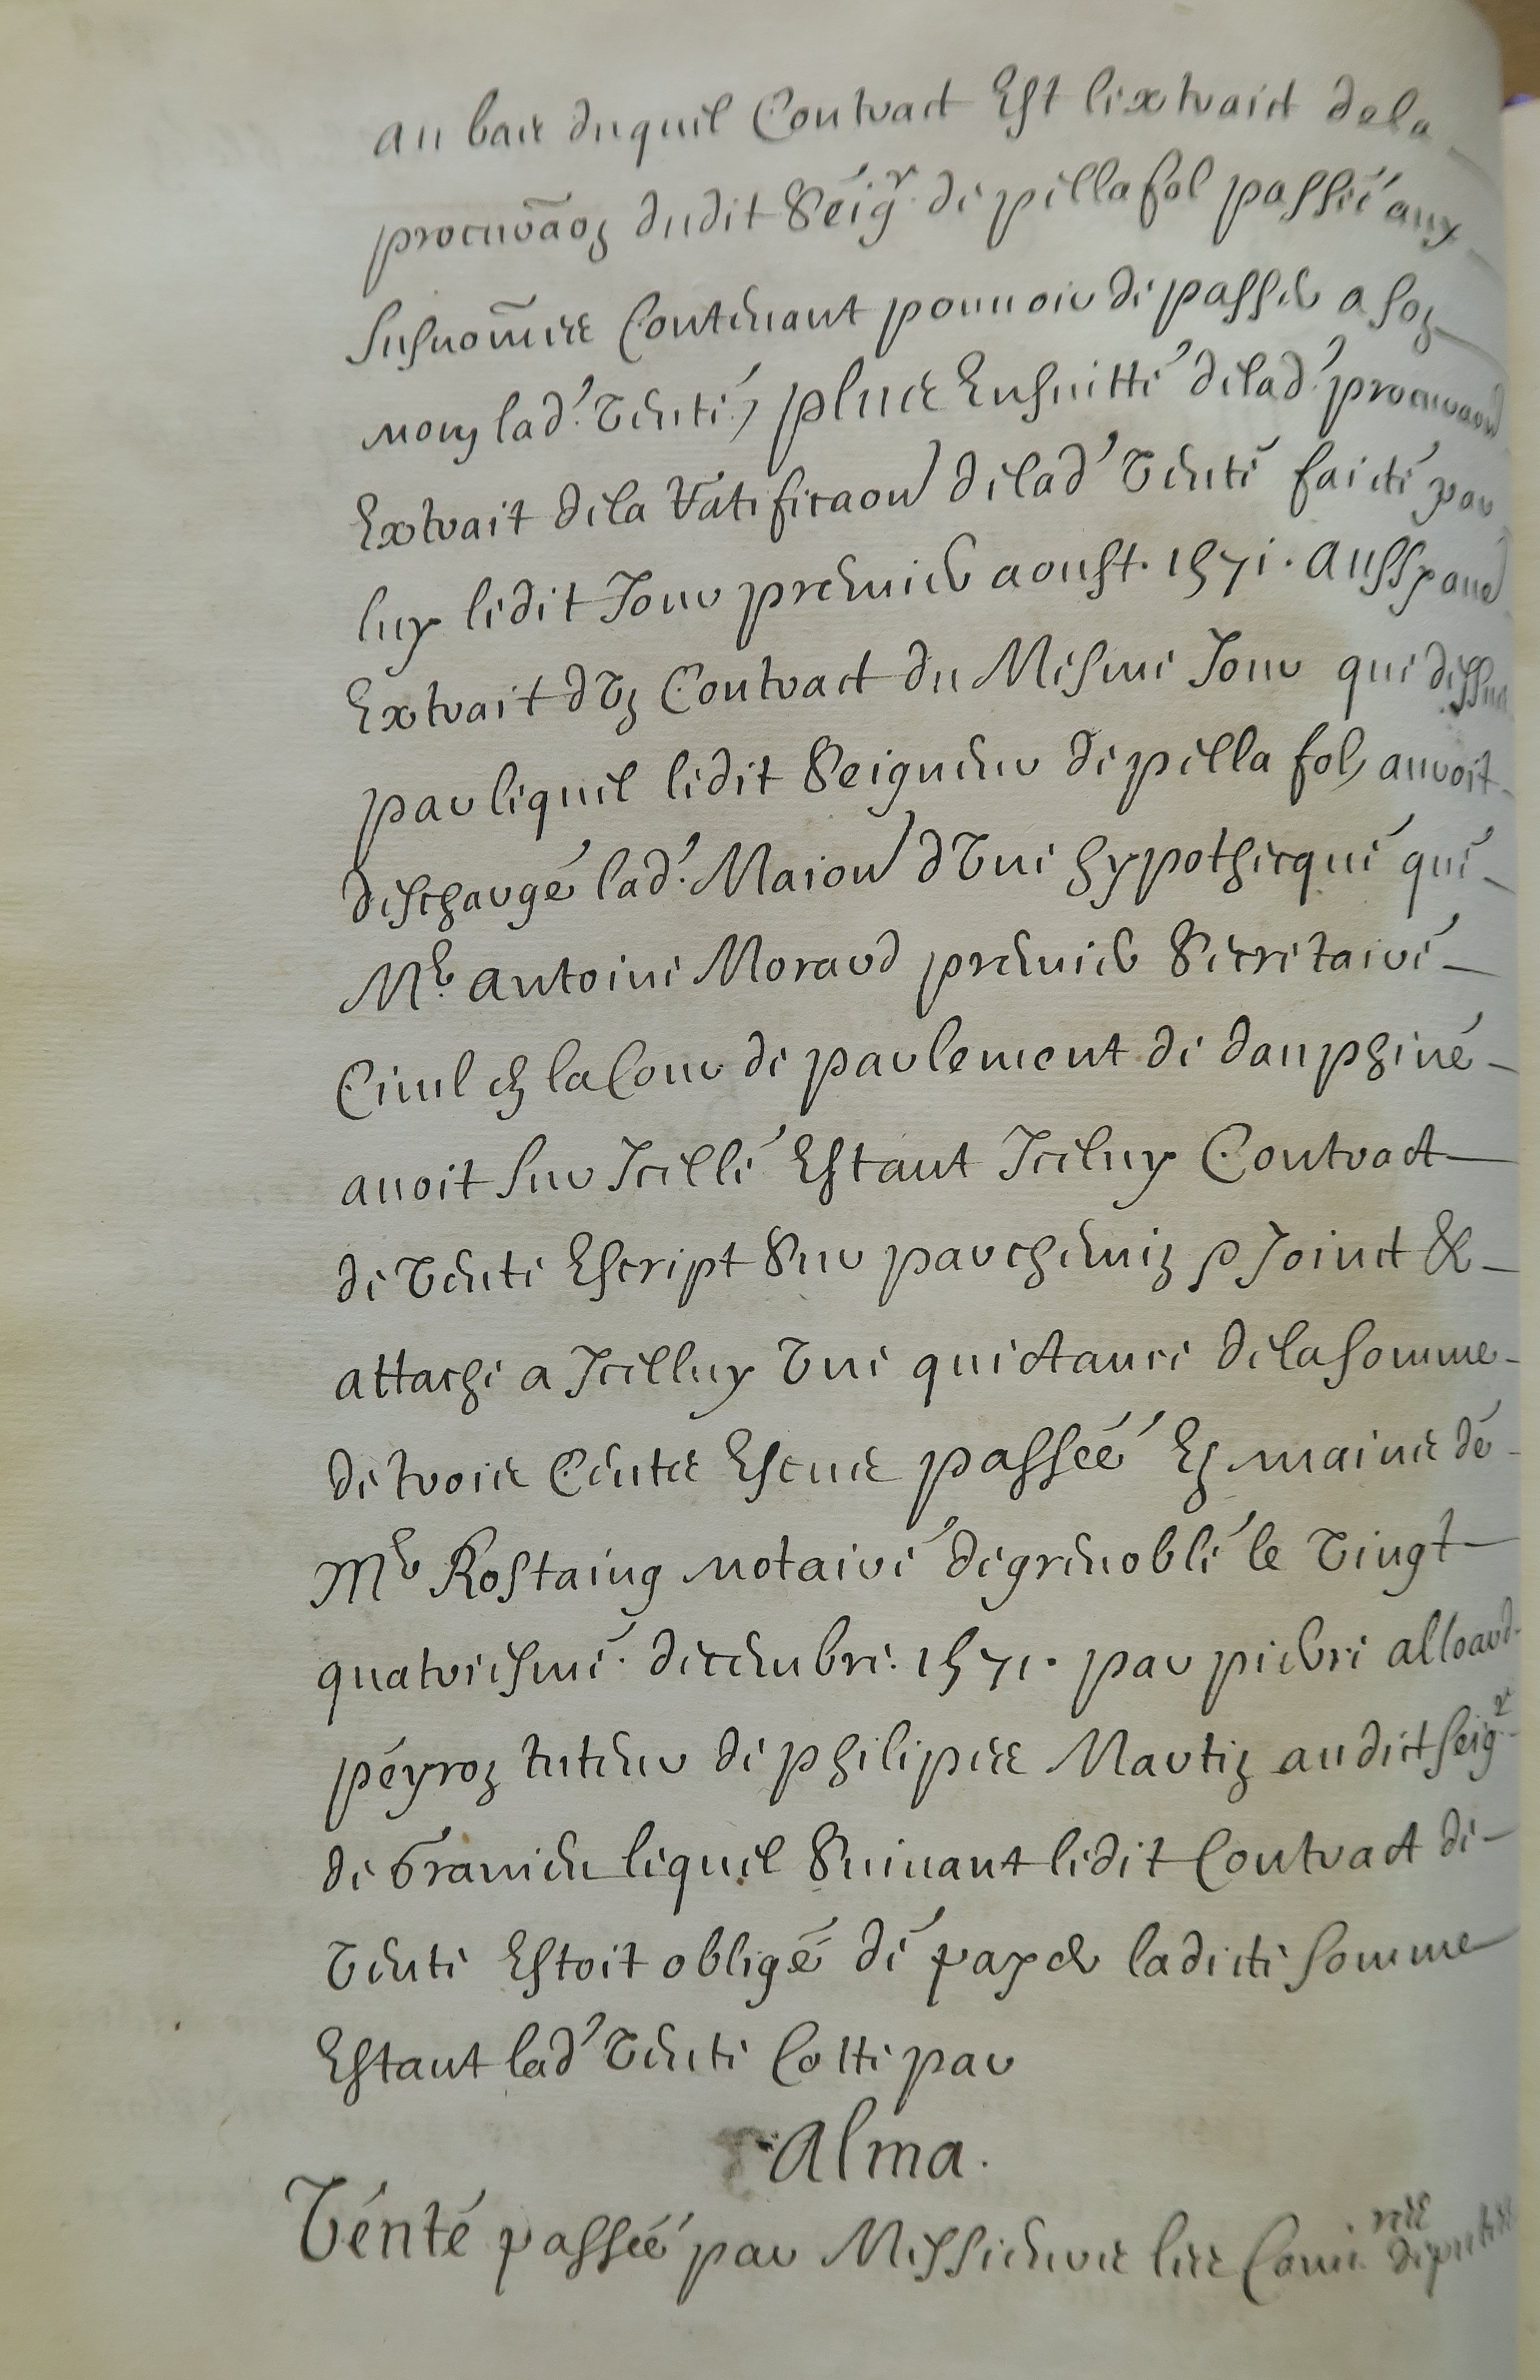 au bas duquel Contract Est lextraict dela
procurãon dudit Seigr. de pellafol passée aux
susnom̃es Contenant pouuoir de passer a son
nom lad. vente, plus Ensuitte delad. procuraon
Extrait dela Ratificaon delad. vente faicte par
luy ledit Jour premier aoust. 1571. aussy aud
Extrait dun Contract du Mesme Jour que dessus
par lequel ledit Seigneur de pella fol, auoit
deschargé lad. Maion dune hypothecque que
Me. Antoine Morard premier Secretaire
Ciuil en la Cour de parlement de dauphiné
auoit sur Icelle Estant Iceluy Contract
de vente Escript sur parchemin & Joinct &
attaché a Icelluy vne quictance dela somme
de trois Cents Escus passée Es mains de
Me Rostaing notaire de grenoble le vingt
quatriesme. decembre. 1571. par pierre alloard
peyron tuteur de philipes Martin audict seigr
de Granieu lequel Suiuant ledit Contract de
vente Estoit obligé de payer ladicte somme
Estant lad vente Cotte par
Alma.
Vente passée par Messieurs les Com.res deputes